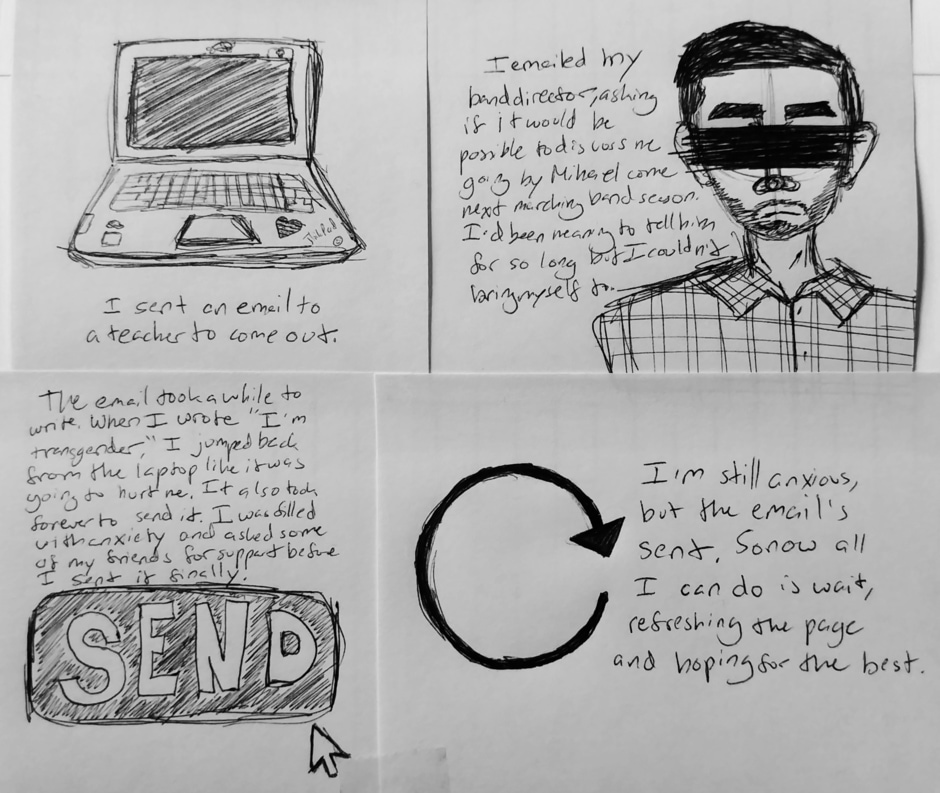 I sent an email to
a teacher to come out.
I emailed my
band director, asking
if it would be
possible to discuss me
going by Mihael come
next marching band season.
I'd been meaning to tell him
for so long but I couldn't
bring myself to.
The email took a while to
write. When I wrote "I'm
transgender," I jumped back
from the laptop like it was
going to hurt me. It also took
forever to send it. I was filled
with anxiety and asked some
of my friends for support before
I sent it finally.
SEND
I'm still anxious,
but the email's
sent. So now all
I can do is wait,
refreshing the page
and hoping for the best.